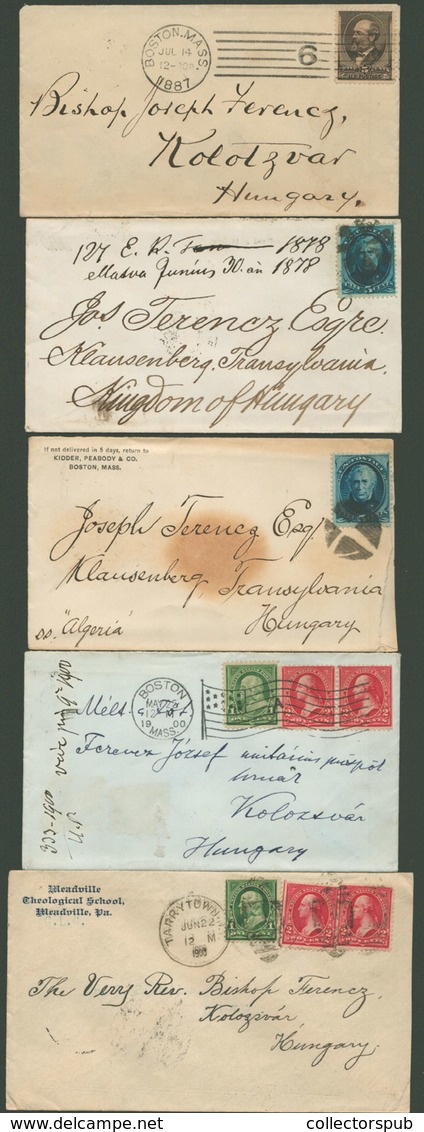 BOSTON, MASS.
JUL 14
1887
6
Bishop Joseph Ferencz,
Kolotzvar
Hungary.
127 E. K. 1878
Junius 30. án 1878
Jos. Ferencz Esqre.
Klausenberg, Transylvania.
Kingdom of Hungary
If not delivered in 5 days, return to
KIDDER, PEABODY & CO.
BOSTON, MASS.
Joseph Ferencz Esq.
Klausenberg Transylvania
Hungary
ss. "Algeria"
BOSTON
12 M
1900
MASS.
Mélt.
Ferencz József unitárius püspök
úrnak
Kolozsvár
Hungary
Meadville
Theological School,
Meadville, Pa.
TARRYTOWN
JUN 22
12 M
1900
1
2 2
The Very Rev. Bishop Ferencz,
Kolozsvár
Hungary.
© collectorspub